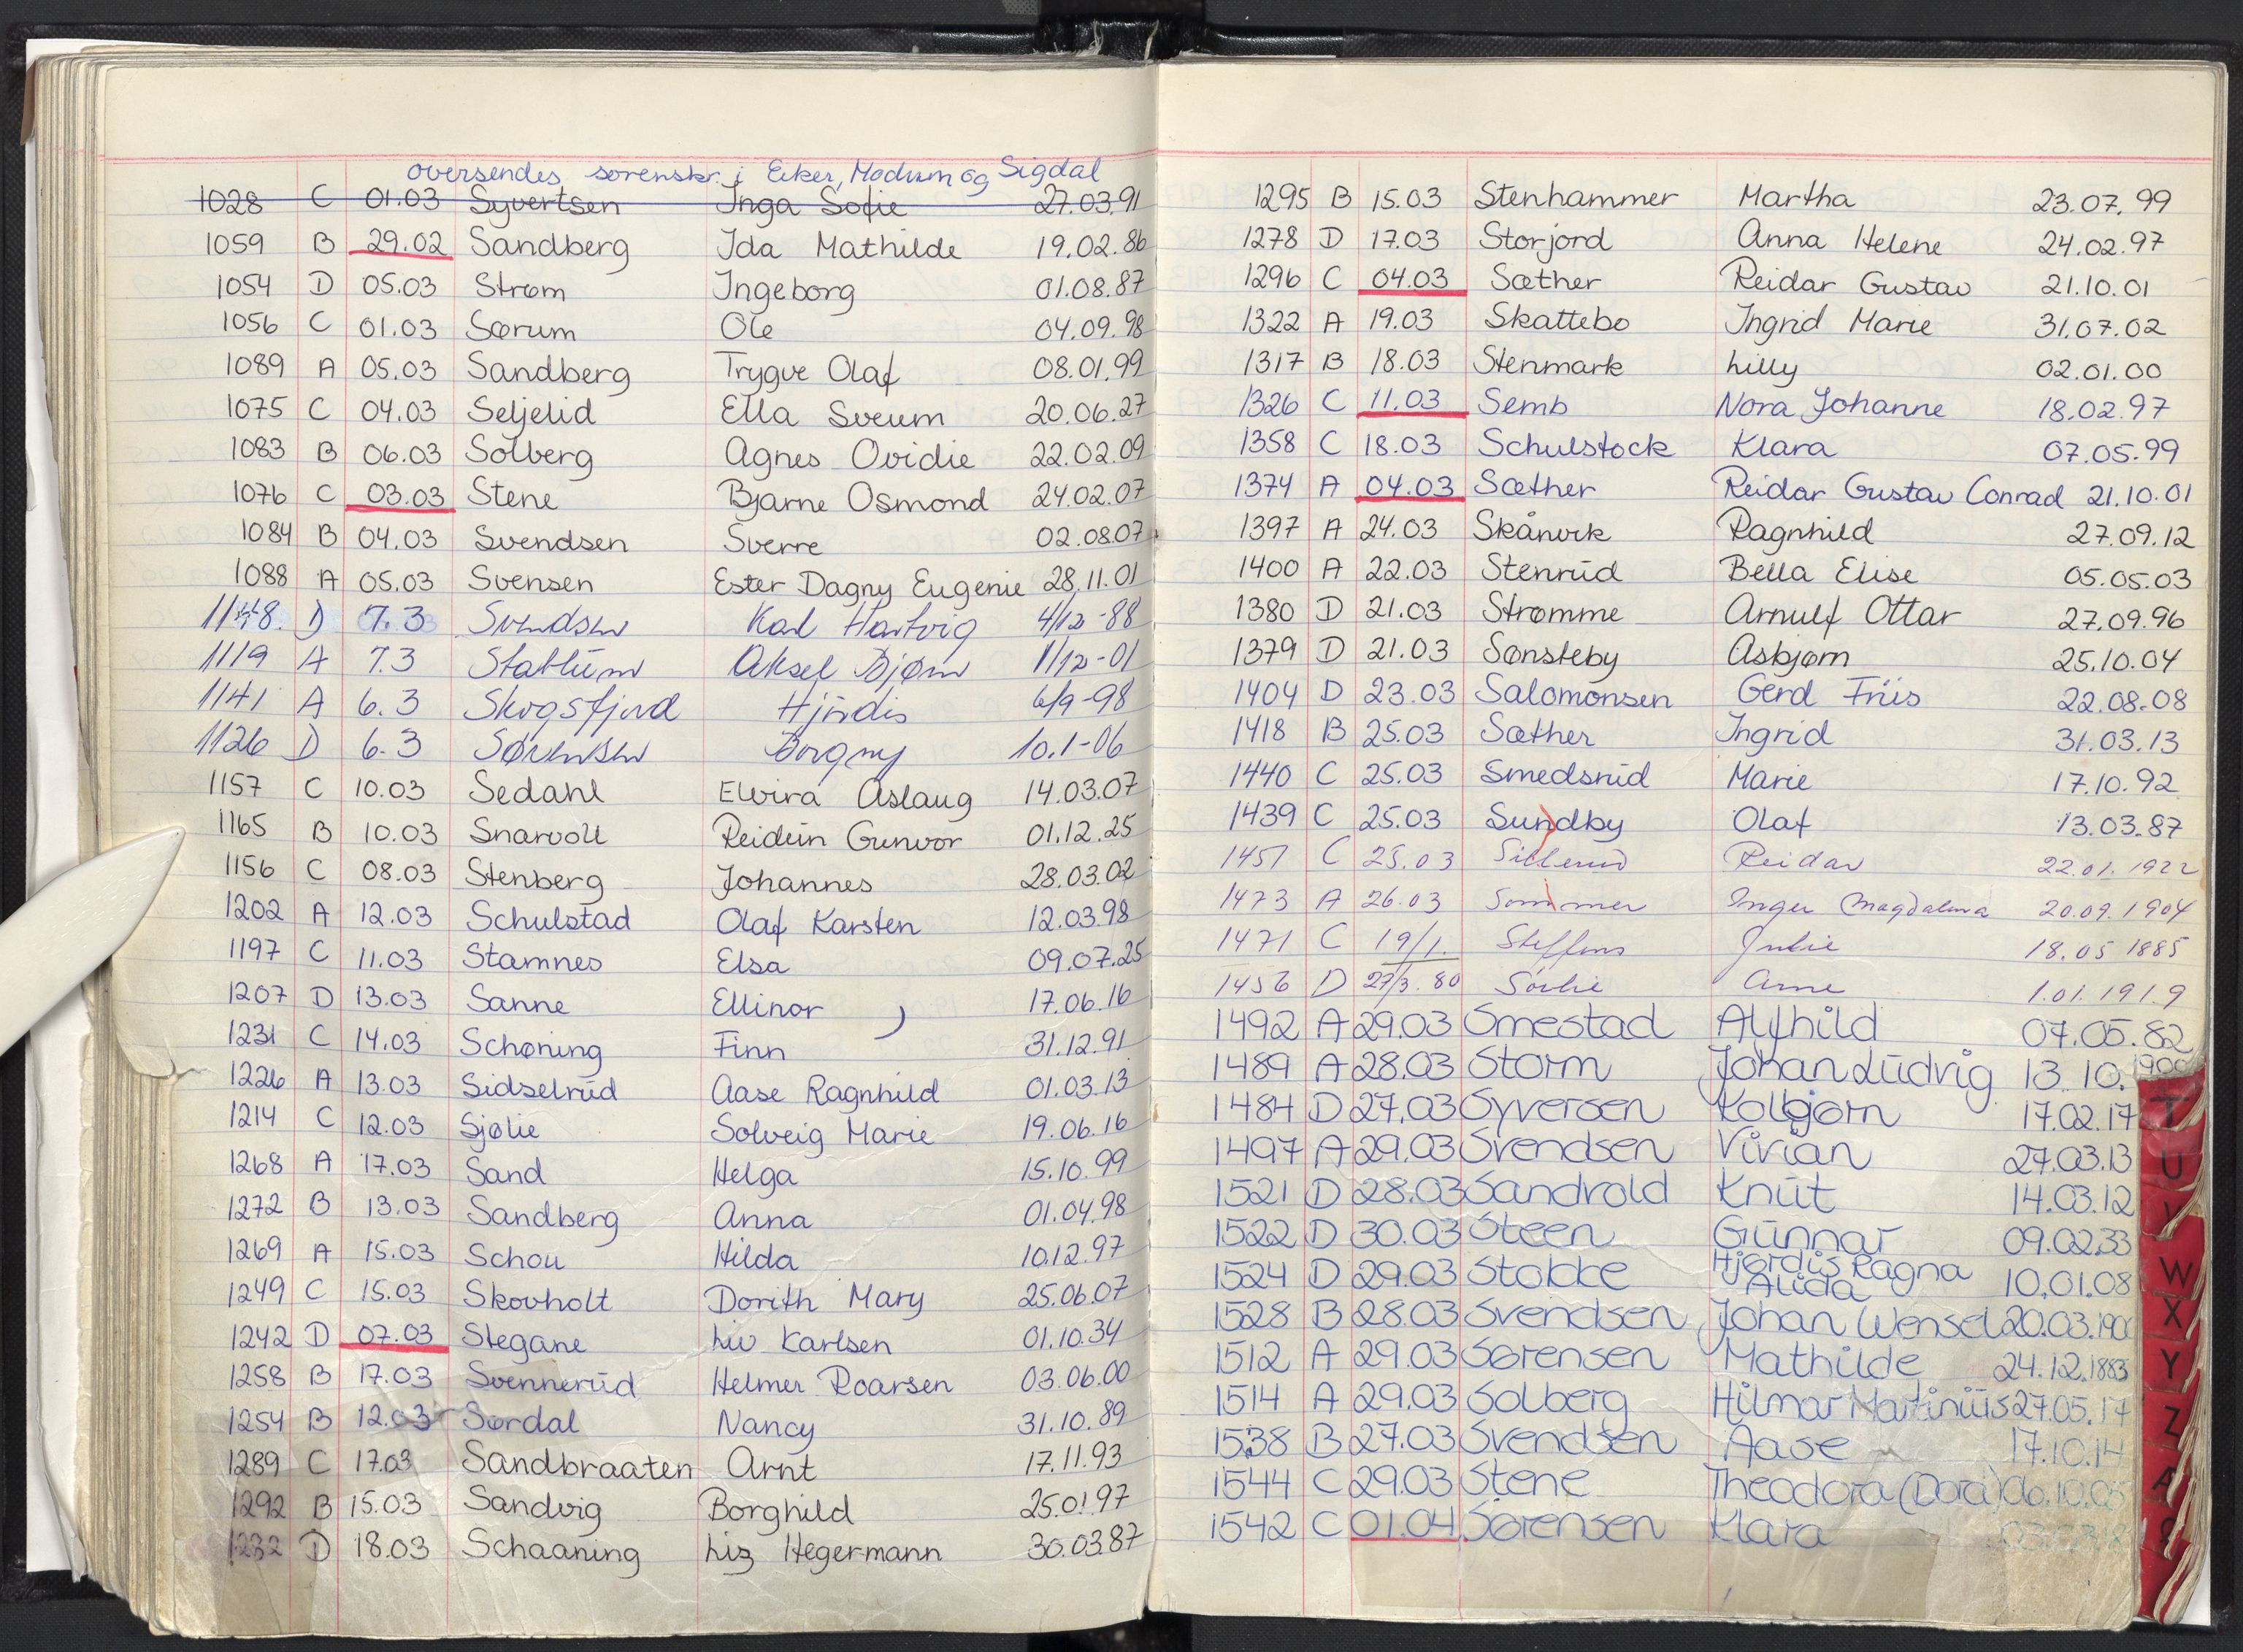 oversendes sorenskr. i Eiker, Modum og Sigdal
1028 C 01.03 Syvertsen Inga Sofie 27.03.91
1059 B 29.02 Sandberg Ida Mathilde 19.02.86
1054 D 05.03 Strøm Ingeborg 01.08.87
1056 C 01.03 Sørum Ole 04.09.98
1089 A 05.03 Sandberg Trygve Olaf 08.01.99
1075 C 04.03 Seljelid Ella Sveum 20.06.27
1083 B 06.03 Solberg Agnes Ovidie 22.02.09
1076 C 03.03 Stene Bjarne Osmond 24.02.07
1084 B 04.03 Svendsen Sverre 02.08.07
1088 A 05.03 Svensen Ester Dagny Eugenie 28.11.01
D 7.3 Svendsen Karl Hartvig 4/12-88
1119 A 7.3 Aksel Bjørn 1/12-01
1141 A 6.3 Skogsfjord Hjördis 6/9-98
1126 D 6.3 Sørensen Borgny 10.1-06
1157 C 10.03 Sedahl Elvira Aslaug 14.03.07
1165 B 10.03 Snarvoll Reidun Gunvor 01.12.25
1156 C 08.03 Stenberg Johannes 28.03.02
1202 A 12.03 Schulstad Olaf Karsten 12.03.98
1197 C 11.03 Stamnes Elsa 09.07.25
1207 D 13.03 Sanne Ellinor 17.06.16
1231 C 14.03 Schøning Finn 31.12.91
1226 A 13.03 Sidselrud Aase Ragnhild 01.03.13
1214 C 12.03 Sjølie Solveig Marie 19.06.16
1268 A 17.03 Sand Helga 15.10.99
1272 B 13.03 Sandberg Anna 01.04.98
1269 A 15.03 Schou Hilda 10.12.97
1249 C 15.03 Skovholt Dorith Mary 25.06.07
1242 D 07.03 Stegane Liv Karlsen 01.10.34
1258 B 17.03 Svennerud Helmer Roarsen 03.06.00
1254 B 12.03 Sørdal Nancy 31.10.89
1289 C 17.03 Sandbraaten Arnt 17.11.93
1292 B 15.03 Sandvig Borghild 25.01.97
1232 D 18.03 Schaaning Liz Hegermann 30.03.87
1295 B 15.03 Stenhammer Martha 23.07.99
1278 D 17.03 Storjord Anna Helene 24.02.97
1296 C 04.03 Sæther Reidar Gustav 21.10.01
1322 A 19.03 Skattebo Ingrid Marie 31.07.02
1317 B 18.03 Stenmark Lilly 02.01.00
1326 C 11.03 Semb Nora Johanne 18.02.97
1358 C 18.03 Schulstock Klara 07.05.99
1374 A 04.03 Sæther Reidar Gustav Conrad 21.10.01
1397 A 24.03 Skånvik Ragnhild 27.09.12
1400 A 22.03 Stenrud Bella Elise 05.05.03
1380 D 21.03 Strømme Arnulf Ottar 27.09.96
1379 D 21.03 Sønsteby Asbjørn 25.10.04
1404 D 23.03 Salomonsen Gerd Friis 22.08.08
1418 B 25.03 Sæther Ingrid 31.03.13
1440 C 25.03 Smedsrud Marie 17.10.92
1439 C 25.03 Sundby Olaf 13.03.87
1451 C 25.03 Reidar 22.01.1922
1473 A 26.03 Sommer Inger Magdalena 20.09.1904
1471 C 19/1. Steffens Julie 18.05 1885
1456 D 27/3.80 Sörlie Arne 1.01.1919
1492 A 29.03 Smestad Alfhild 07.05.82
1489 A 28.03 Storm Johan Ludvig 13.10.1900
1484 D 27.03 Syversen Kolbjørn 17.02.17
1497 A 29.03 Svendsen Vivian 27.03.13
1521 D 28.03 Sandvold Knut 14.03.12
1522 D 30.03 Steen Gunnar 09.02.33
1524 D 29.03 Stokke Hjørdis Ragna Alida 10.01.08
1528 B 28.03 Svendsen Johan Wensel 20.03.1900
1512 A 29.03 Sørensen Mathilde 24.12.1883
1514 A 29.03 Solberg Hilmar Martinius 27.05.17
1538 B 27.03 Svendsen Aase 17.10.14
1544 C 29.03 Stene Theodora (Dora) 06.10.05
1542 C 01.04 Sørensen Klara
T
U
V
W
X
Y
Z
Æ
Ø